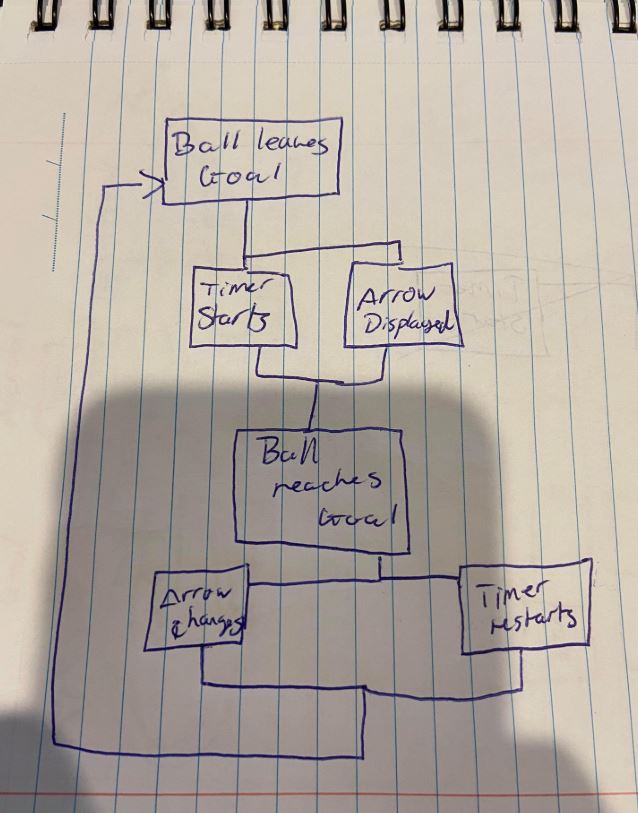 Ball leaves
Goal
Timer
Starts
Arrow
Displayed
Ball
reaches
Goal
Arrow
changes
Timer
restarts